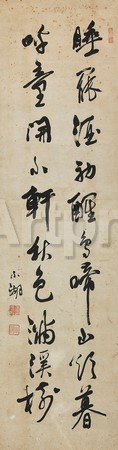 睡罷酒初醒鳥啼山欲暮
呼童開小軒秋色滿溪樹